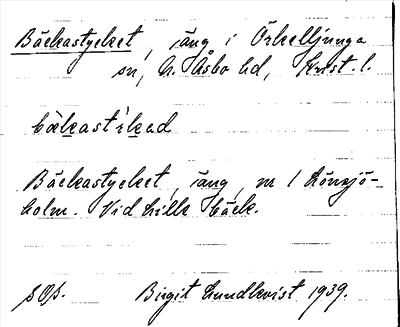 Bäckastycket, äng i Örkelljunga
sn, N. Åsbo hd, Krist. l.
bækast`ikad
Bäckastycket, äng, m 1 Lönsjö-
holm. Vid liten bäck.
SOP.
Birgit Lundkvist 1939.